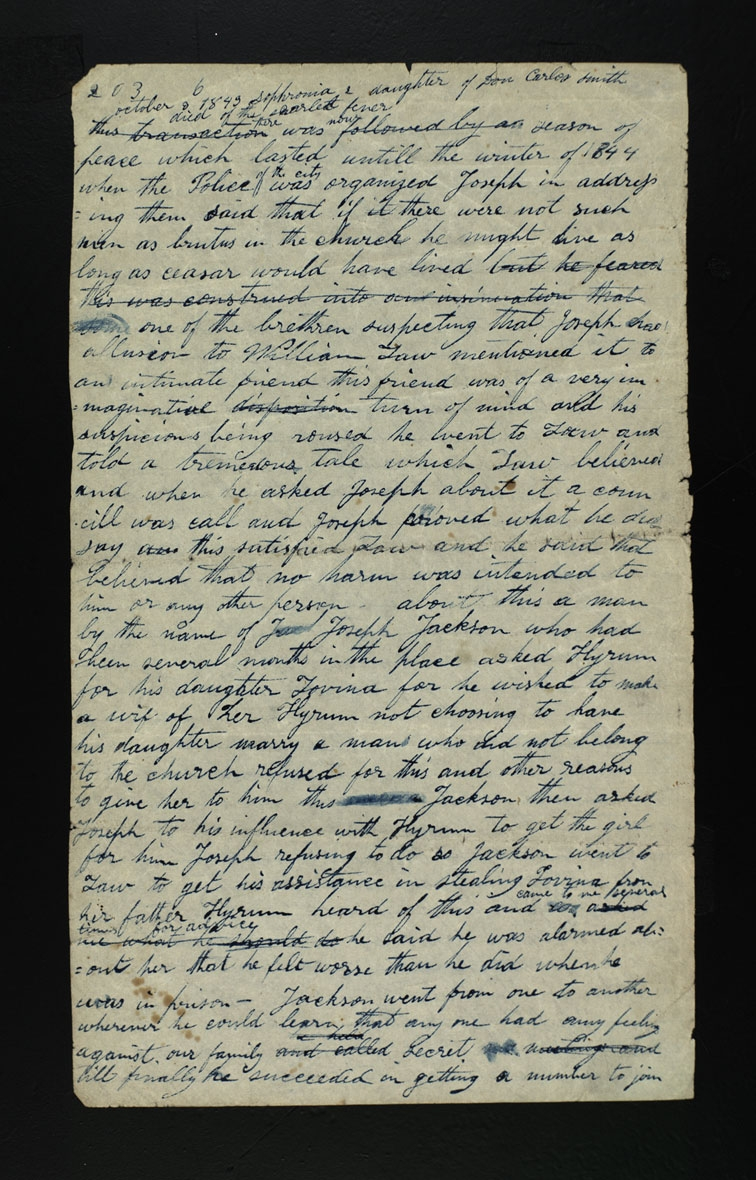 2 0 3 6
october 3 1843 Sophronia 2 daughter of Don Carlos Smith
died of the scarlett fever
this transaction was now followed by an season of
peace which lasted untill the winter of 1844
when the Police of the city was organized Joseph in address
=ing them said that if it there were not such
men as brutus in the church he might live as
long as ceasar would have lived but he feared
this was construed into an insinuation that
some one of the brethren suspecting that Joseph had
allusion to William Law mentioned it to
an intimate friend this friend was of a very im
=maginative disposition turn of mind and his
suspicions being roused he went to Law and
told a tremedous tale which Law believed
and when he asked Joseph about it a coun
cill was call and Joseph proved what he did
say and this satisfied Law and he said that
believed that no harm was intended to
him or any other person about this a man
by the name of Joseph Jackson who had
been several months in the place asked Hyrum
for his daughter Lovina for he wished to make
a wife of her Hyrum not choosing to have
his daughter marry a man who did not belong
to the church refused for this and other reasons
to give her to him this Jackson then asked
Joseph to his influence with Hyrum to get the girl
for him Joseph refusing to do so Jackson went to
Law to get his assistance in stealing Lovina from
her father Hyrum heard of this and came to me several asked
times for advice
me what he should do he said he was alarmed ab=
=out her that he felt worse than he did when he
was in prison — Jackson went from one to another
wherever he could learn that any one had any feeling
against our family and called held secret meetings and
till finally he succeeded in getting a number to join